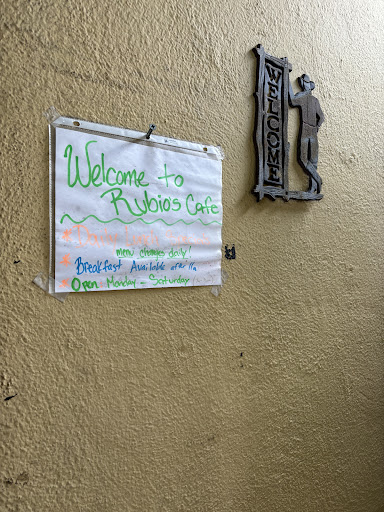 Welcome to
Rubio's Cafe
menu changes daily!
Breakfast Available after 11a
Open Monday - Saturday
WELCOME